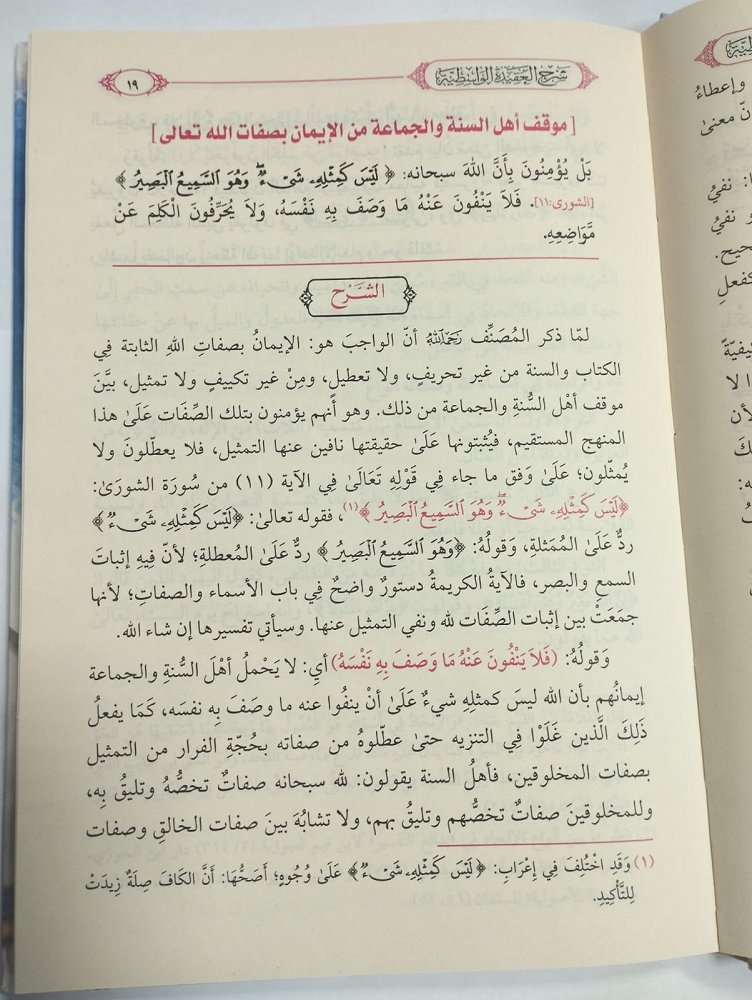 شرح العقيدة الواسطية
١٩
[موقف أهل السنة والجماعة من الإيمان بصفات الله تعالى]
بَلْ يُؤْمِنُونَ بِأَنَّ اللهَ سبحانه: ﴿لَيْسَ كَمِثْلِهِۦ شَىْءٌ ۖ وَهُوَ السَّمِيعُ الْبَصِيرُ﴾
[الشورى:١١]. فَلَا يَنْفُونَ عَنْهُ مَا وَصَفَ بِهِ نَفْسَهُ، وَلَا يُحَرِّفُونَ الْكَلِمَ عَنْ
مَّوَاضِعِهِ.
الشَّرْح
لمّا ذكر المُصَنِّف رَحِمَهُ اللَّهُ أنّ الواجبَ هو: الإيمانُ بصفاتِ اللهِ الثابتة فِي
الكتاب والسنة من غير تحريفٍ، ولا تعطيلٍ، ومِنْ غير تكييفٍ ولا تمثيل، بيَّنَ
موقف أهْل السُّنةِ والجماعة من ذلك. وهو أنَّهم يؤمنون بتلك الصِّفَات عَلَىٰ هذا
المنهج المستقيم، فيُثبتونها عَلَىٰ حقيقتها نافين عنها التمثيل، فلا يعطّلون ولا
يُمثّلون؛ عَلَىٰ وَفق ما جاء فِي قَوْلِهِ تَعَالَىٰ فِي الآية (١١) من سُورَة الشورَىٰ:
﴿لَيْسَ كَمِثْلِهِۦ شَىْءٌ ۖ وَهُوَ السَّمِيعُ الْبَصِيرُ﴾(١)، فقوله تعالىٰ: ﴿لَيْسَ كَمِثْلِهِۦ شَىْءٌ﴾
ردٌّ عَلَىٰ المُمَثلة، وَقولُهُ: ﴿وَهُوَ السَّمِيعُ الْبَصِيرُ﴾ ردٌّ عَلَىٰ المُعطلةِ؛ لأنّ فِيهِ إثباتَ
السمعِ والبصر، فالآيةُ الكريمةُ دستورٌ واضحٌ فِي باب الأسماء والصفاتِ؛ لأنها
جمَعَتْ بين إثبات الصِّفَات لله ونفي التمثيل عنها. وسيأتي تفسيرها إن شاء الله.
وَقولُهُ: (فَلَا يَنْفُونَ عَنْهُ مَا وَصَفَ بِهِ نَفْسَهُ) أي: لا يَحْملُ أهْلَ السُّنةِ والجماعة
إيمانُهم بأن الله ليسَ كمثلِهِ شيءٌ عَلَىٰ أنْ ينفُوا عنه ما وصَفَ بِه نفسَه، كَمَا يفعلُ
ذَلِكَ الَّذين غَلَوْا فِي التنزيه حتىٰ عطّلوهُ من صفاته بحُجّةِ الفرار من التمثيل
بصفات المخلوقين، فأهلُ السنة يقولون: لله سبحانه صفاتٌ تخصُّهُ وتليقُ بِه،
وللمخلوقينَ صفاتٌ تخصُّهم وتليقُ بهم، ولا تشابُهَ بينَ صفات الخالقِ وصفات
(١) وَقَدِ اخْتُلِفَ فِي إِعْرَابِ: ﴿لَيْسَ كَمِثْلِهِۦ شَىْءٌ﴾ عَلَىٰ وُجُوهٍ؛ أَصَحُّهَا: أَنَّ الكَافَ صِلَةٌ زِيدَتْ
لِلتَّأْكِيدِ.